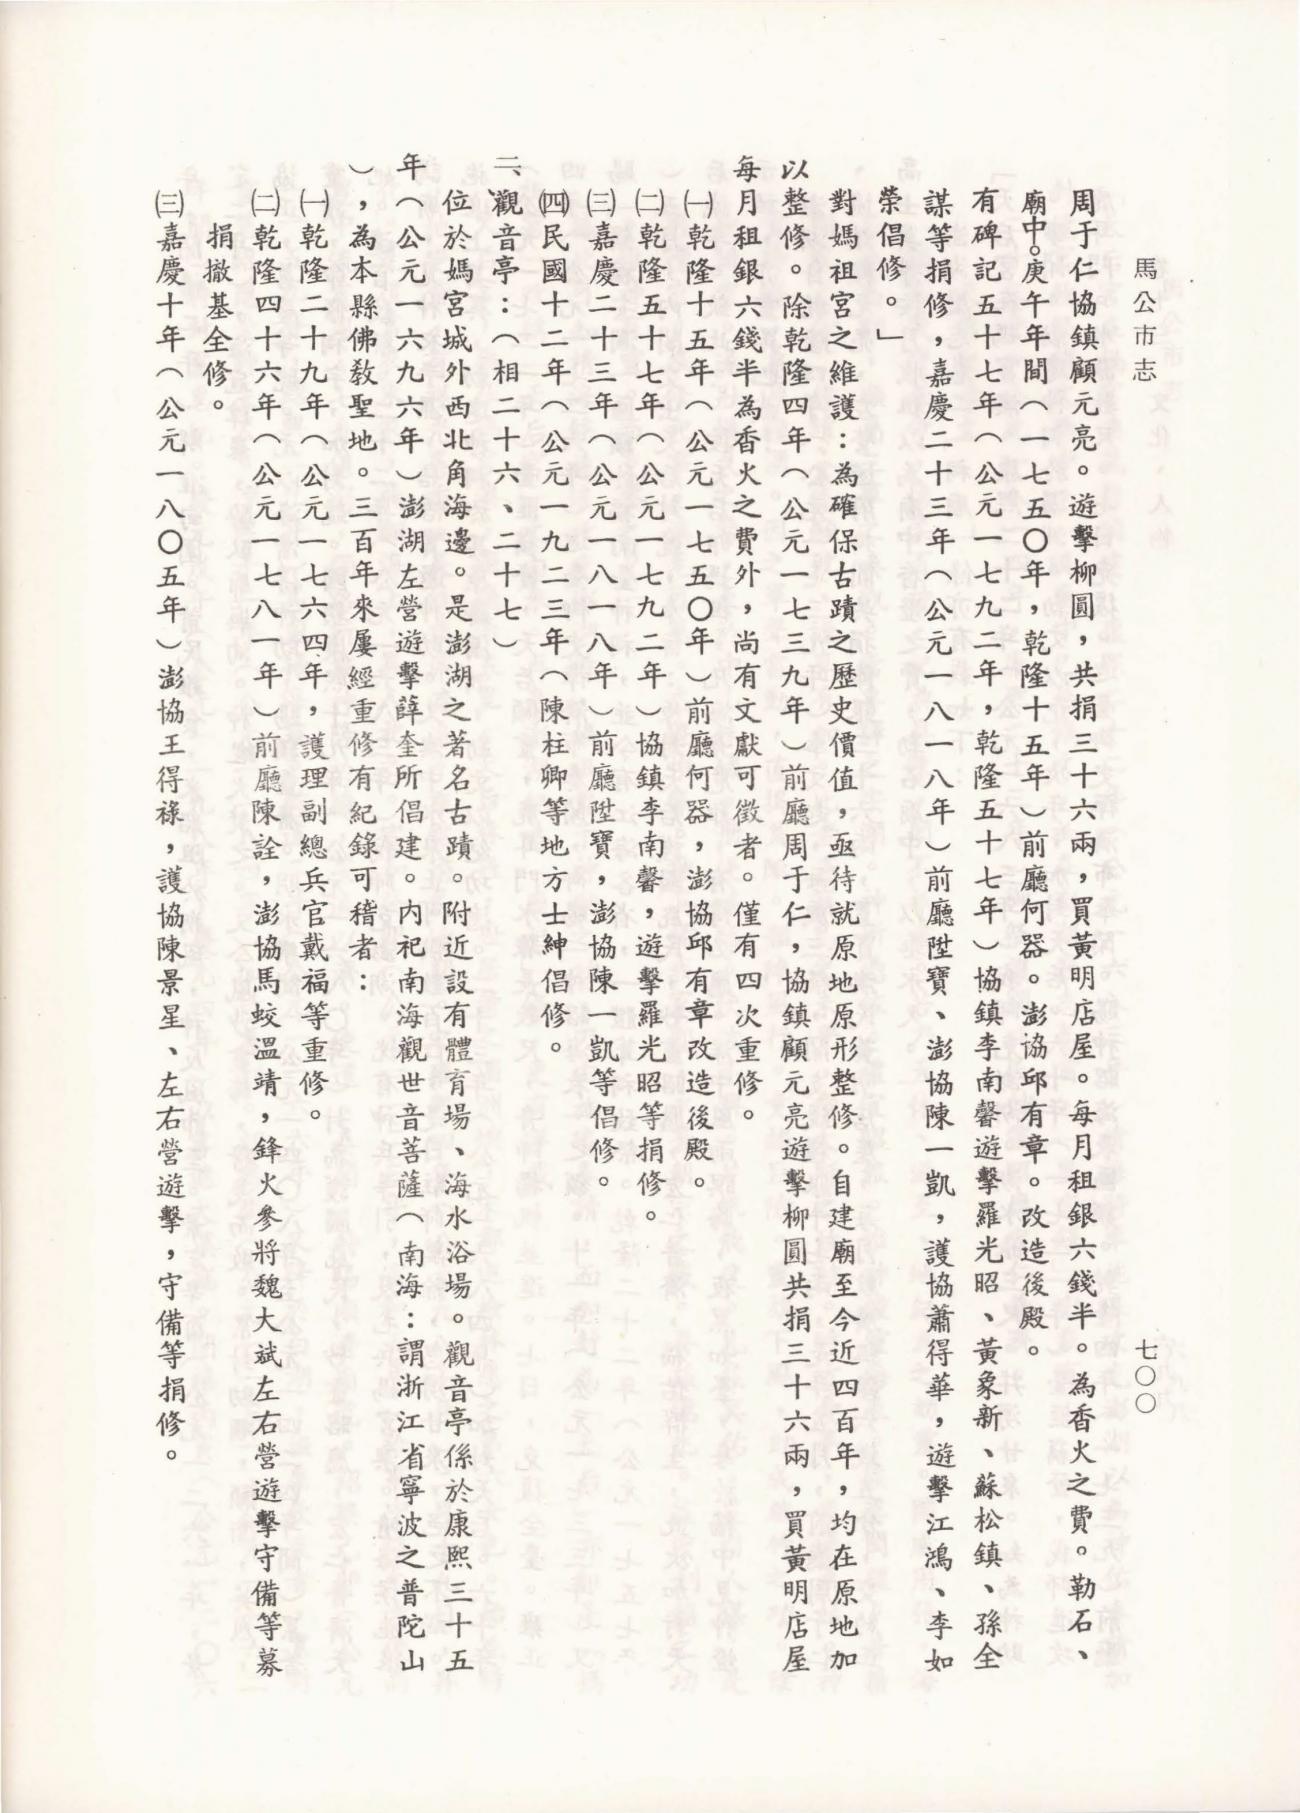 馬公市志
七〇〇
周于仁協鎮顧元亮。遊擊柳圓，共捐三十六兩，買黃明店屋。每月租銀六錢半。為香火之費。勒石、
廟中。庚午年間（一七五〇年，乾隆十五年）前廳何器。澎協邱有章。改造後殿。
有碑記五十七年（公元一七九二年，乾隆五十七年）協鎮李南馨遊擊羅光昭、黃象新、蘇松鎮、孫全
謀等捐修，嘉慶二十三年（公元一八一八年）前廳陞寶、澎協陳一凱，護協蕭得華，遊擊江鴻、李如
榮倡修。」
對媽祖宮之維護：為確保古蹟之歷史價值，亟待就原地原形整修。自建廟至今近四百年，均在原地加
以整修。除乾隆四年（公元一七三九年）前廳周于仁，協鎮顧元亮遊擊柳圓共捐三十六兩，買黃明店屋
每月租銀六錢半為香火之費外，尚有文獻可徵者。僅有四次重修。
㈠乾隆十五年（公元一七五〇年）前廳何器，澎協邱有章改造後殿。
㈡乾隆五十七年（公元一七九二年）協鎮李南馨，遊擊羅光昭等捐修。
㈢嘉慶二十三年（公元一八一八年）前廳陞寶，澎協陳一凱等倡修。
㈣民國十二年（公元一九二三年（陳柱卿等地方士紳倡修。
二、觀音亭：（相二十六、二十七）
位於媽宮城外西北角海邊。是澎湖之著名古蹟。附近設有體育場、海水浴場。觀音亭係於康熙三十五
年（公元一六九六年）澎湖左營遊擊薛奎所倡建。內祀南海觀世音菩薩（南海：謂浙江省寧波之普陀山
），為本縣佛教聖地。三百年來屢經重修有紀錄可稽者：
㈠乾隆二十九年（公元一七六四年，護理副總兵官戴福等重修。
㈡乾隆四十六年（公元一七八一年）前廳陳詮，澎協馬蛟溫靖，鋒火參將魏大斌左右營遊擊守備等募
捐撤基全修。
㈢嘉慶十年（公元一八〇五年）澎協王得祿，護協陳景星、左右營遊擊，守備等捐修。